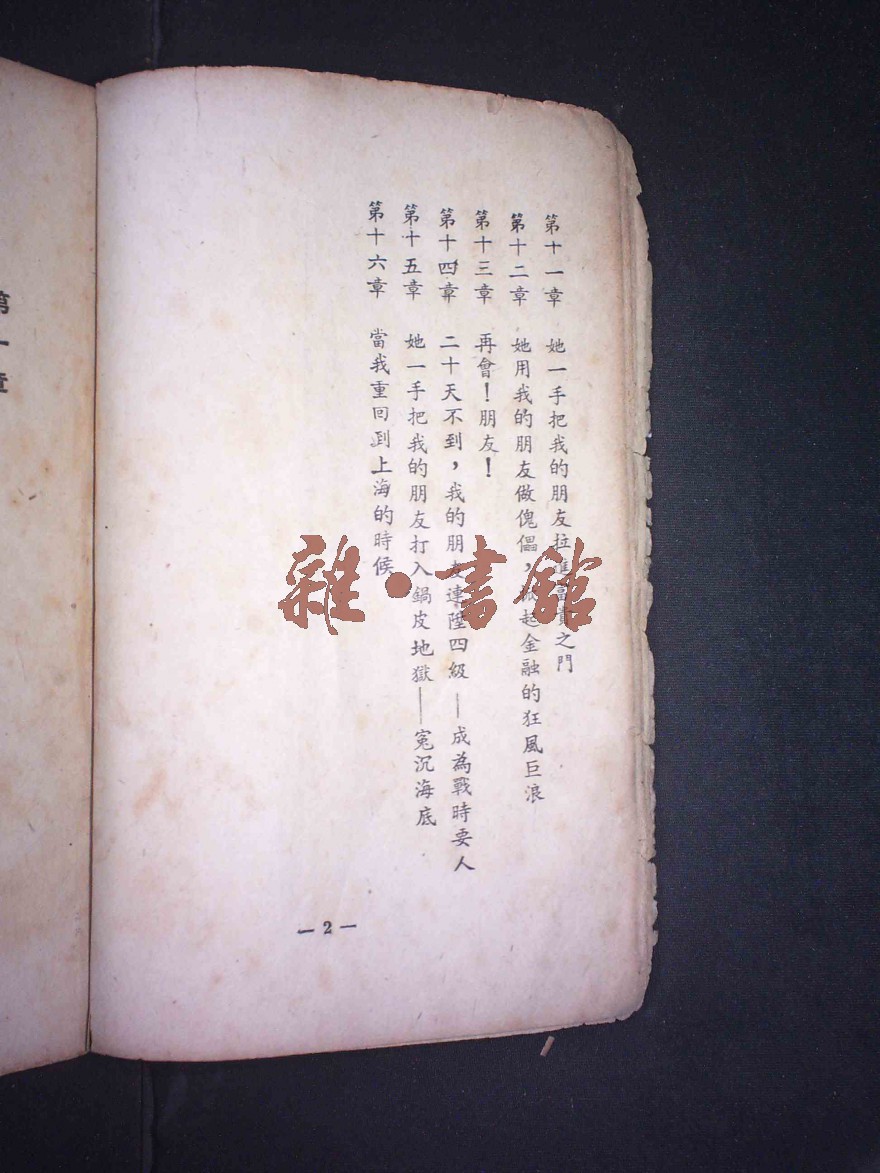 第十一章 她一手把我的朋友拉進富貴之門
第十二章 她用我的朋友做傀儡，掀起金融的狂風巨浪
第十三章 再會！朋友！
第十四章 二十天不到，我的朋友連陞四級—成為戰時要人
第十五章 她一手把我的朋友打入鍋皮地獄——寃沉海底
第十六章 當我重回到上海的時候
— 2 —
第一章
雜·書館